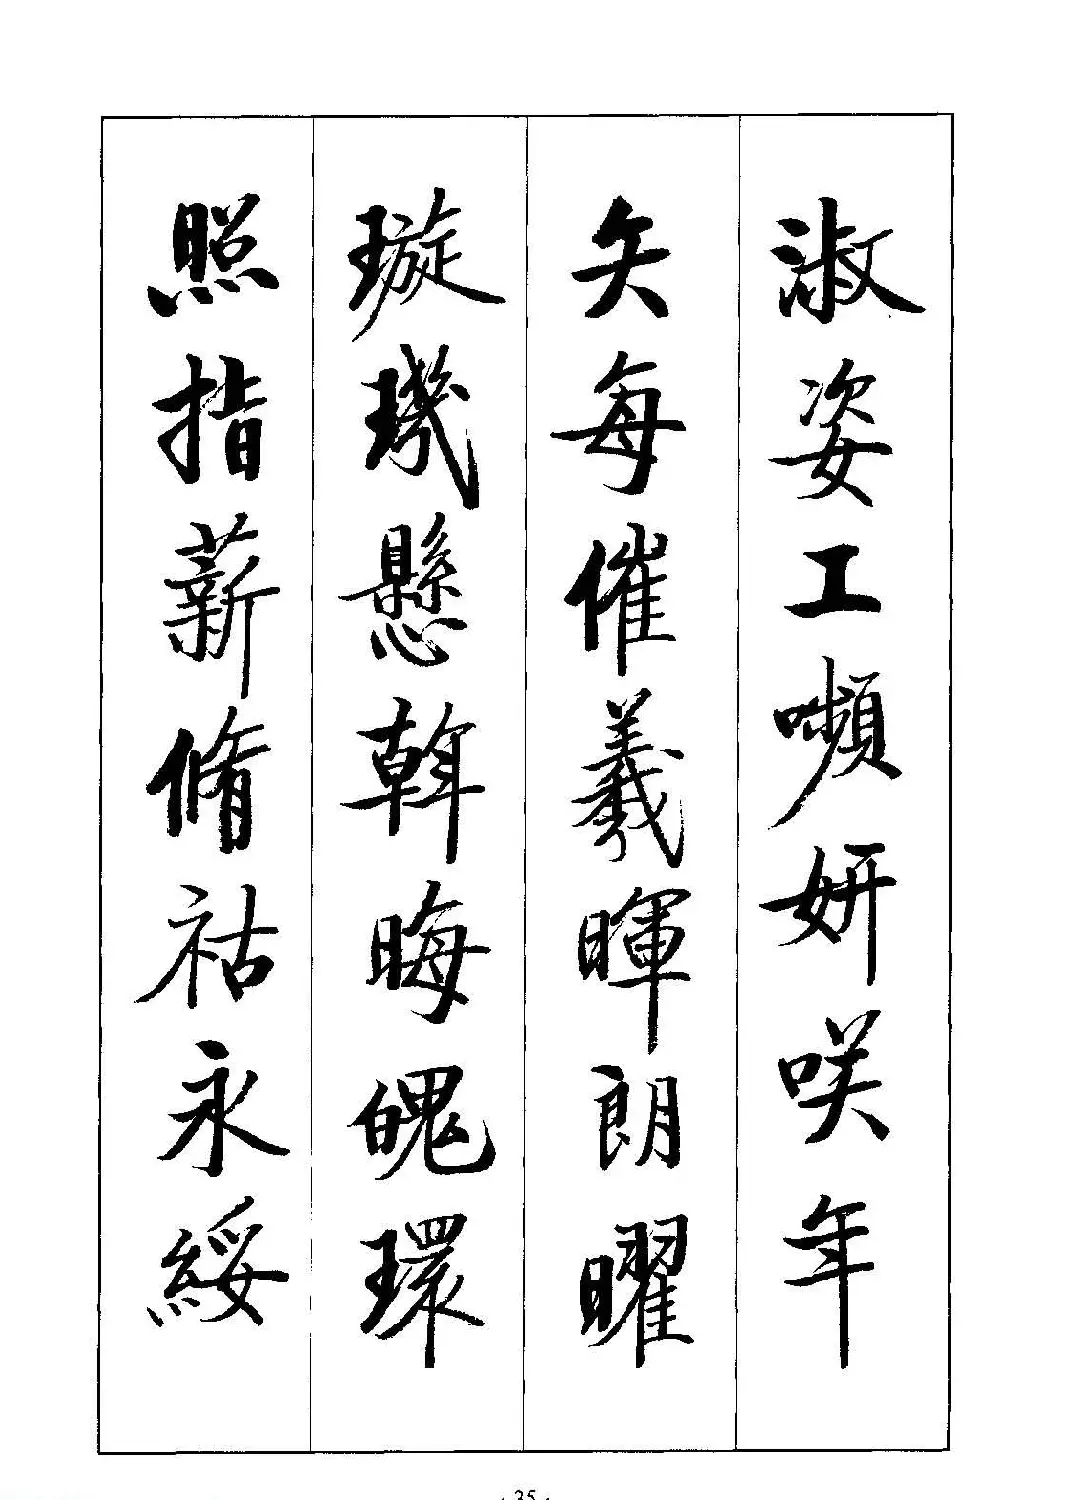 淑姿工嚬妍咲年
矢每催羲暉朗曜
璇璣懸斡晦魄環
照指薪脩祜永綏
· 35 ·